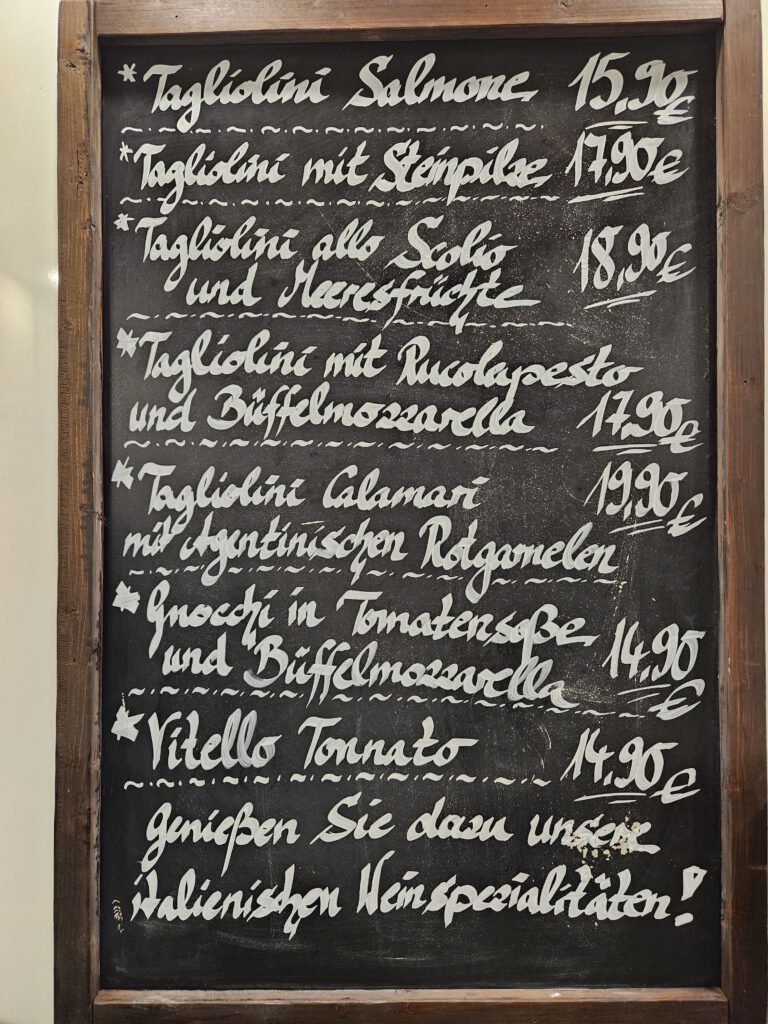 * Tagliolini Salmone 15,90 €
* Tagliolini mit Steinpilze 17,90 €
* Tagliolini allo Scolio 18,90 €
und Meeresfrüchte
* Tagliolini mit Rucolapesto
und Büffelmozzarella 17,90 €
* Tagliolini Calamari 19,90 €
mit Agentinischen Rotgarnelen
* Gnocchi in Tomatensoße
und Büffelmozzarella 14,90 €
* Vitello Tonnato 14,90 €
genießen Sie dazu unsere
italienischen Weinspezialitäten!